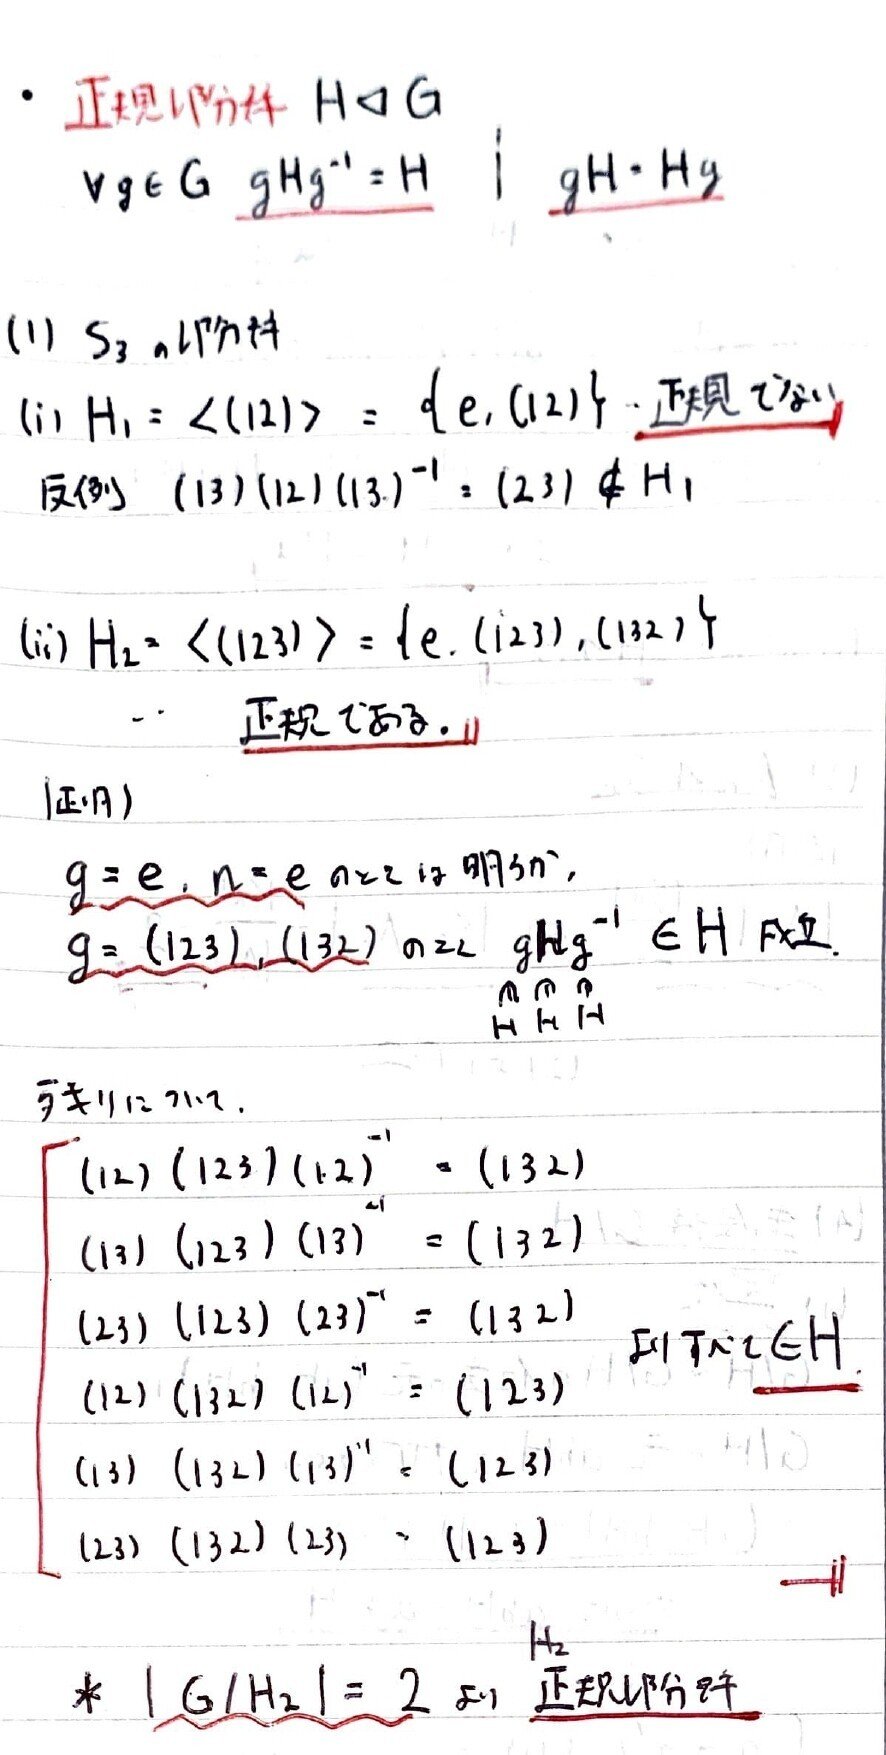 ・ 正規部分群 H ◁ G
∀g∈G gHg⁻¹ = H | gH = Hg
(1) S₃の部分群
(i) H₁ = <(12)> = {e, (12)} … 正規でない
反例 (13)(12)(13)⁻¹ = (23) ∉ H₁
(ii) H₂ = <(123)> = {e, (123), (132)}
… 正規である.
証明)
g = e, n = e のときは明らか,
g = (123), (132) のとき gHg⁻¹ ∈ H 成立.
∩ ∩ ∩
H H H
残りについて.
(12) (123) (12)⁻¹ = (132)
(13) (123) (13)⁻¹ = (132)
(23) (123) (23)⁻¹ = (132)
よりすべて ∈H.
(12) (132) (12)⁻¹ = (123)
(13) (132) (13)⁻¹ = (123)
(23) (132) (23) = (123)
H₂
* |G/H₂| = 2 より 正規部分群